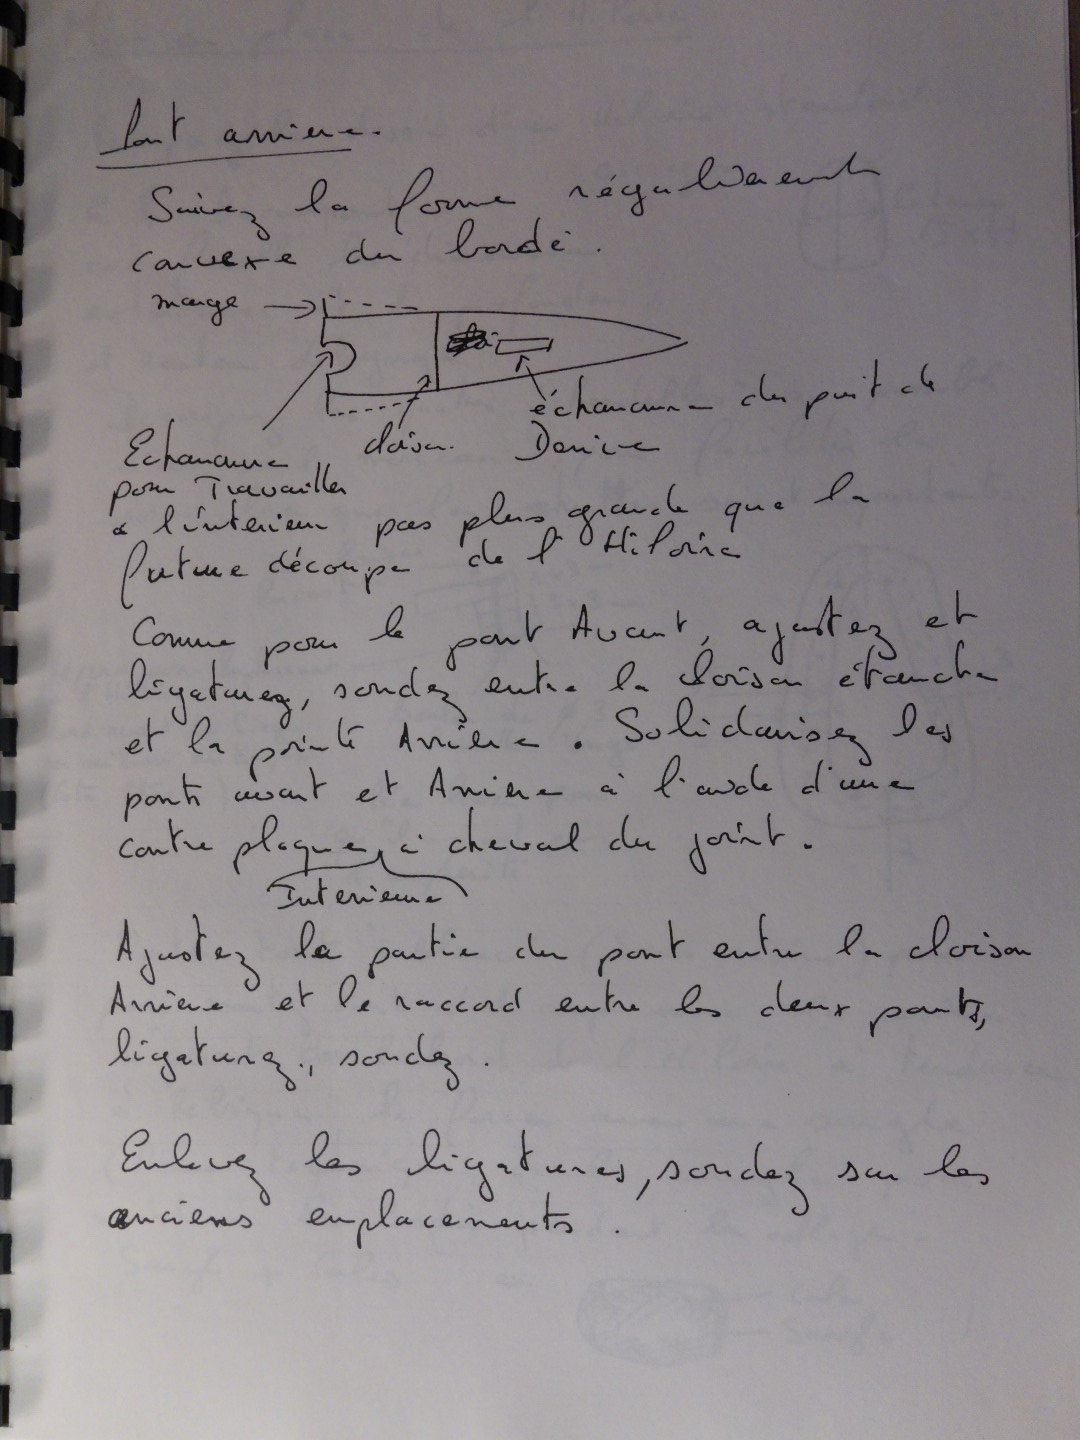 Pont arrière.
Suivez la forme régulièrement
convexe du bordé.
marge
échancrure du puit de
Dérive
cloison.
Echancrure
pour Travailler
à l'intérieur pas plus grande que la
future découpe de l'Hiloire
Comme pour le pont Avant, ajustez et
ligaturez, soudez entre la cloison étanche
et la pointe Arrière. Solidarisez les
ponts avant et Arrière à l'aide d'une
contre plaque, à cheval du joint.
Interieure
Ajustez la partie du pont entre la cloison
Arrière et le raccord entre les deux ponts,
ligaturez, soudez.
Enlevez les ligatures, soudez sur les
anciens emplacements.